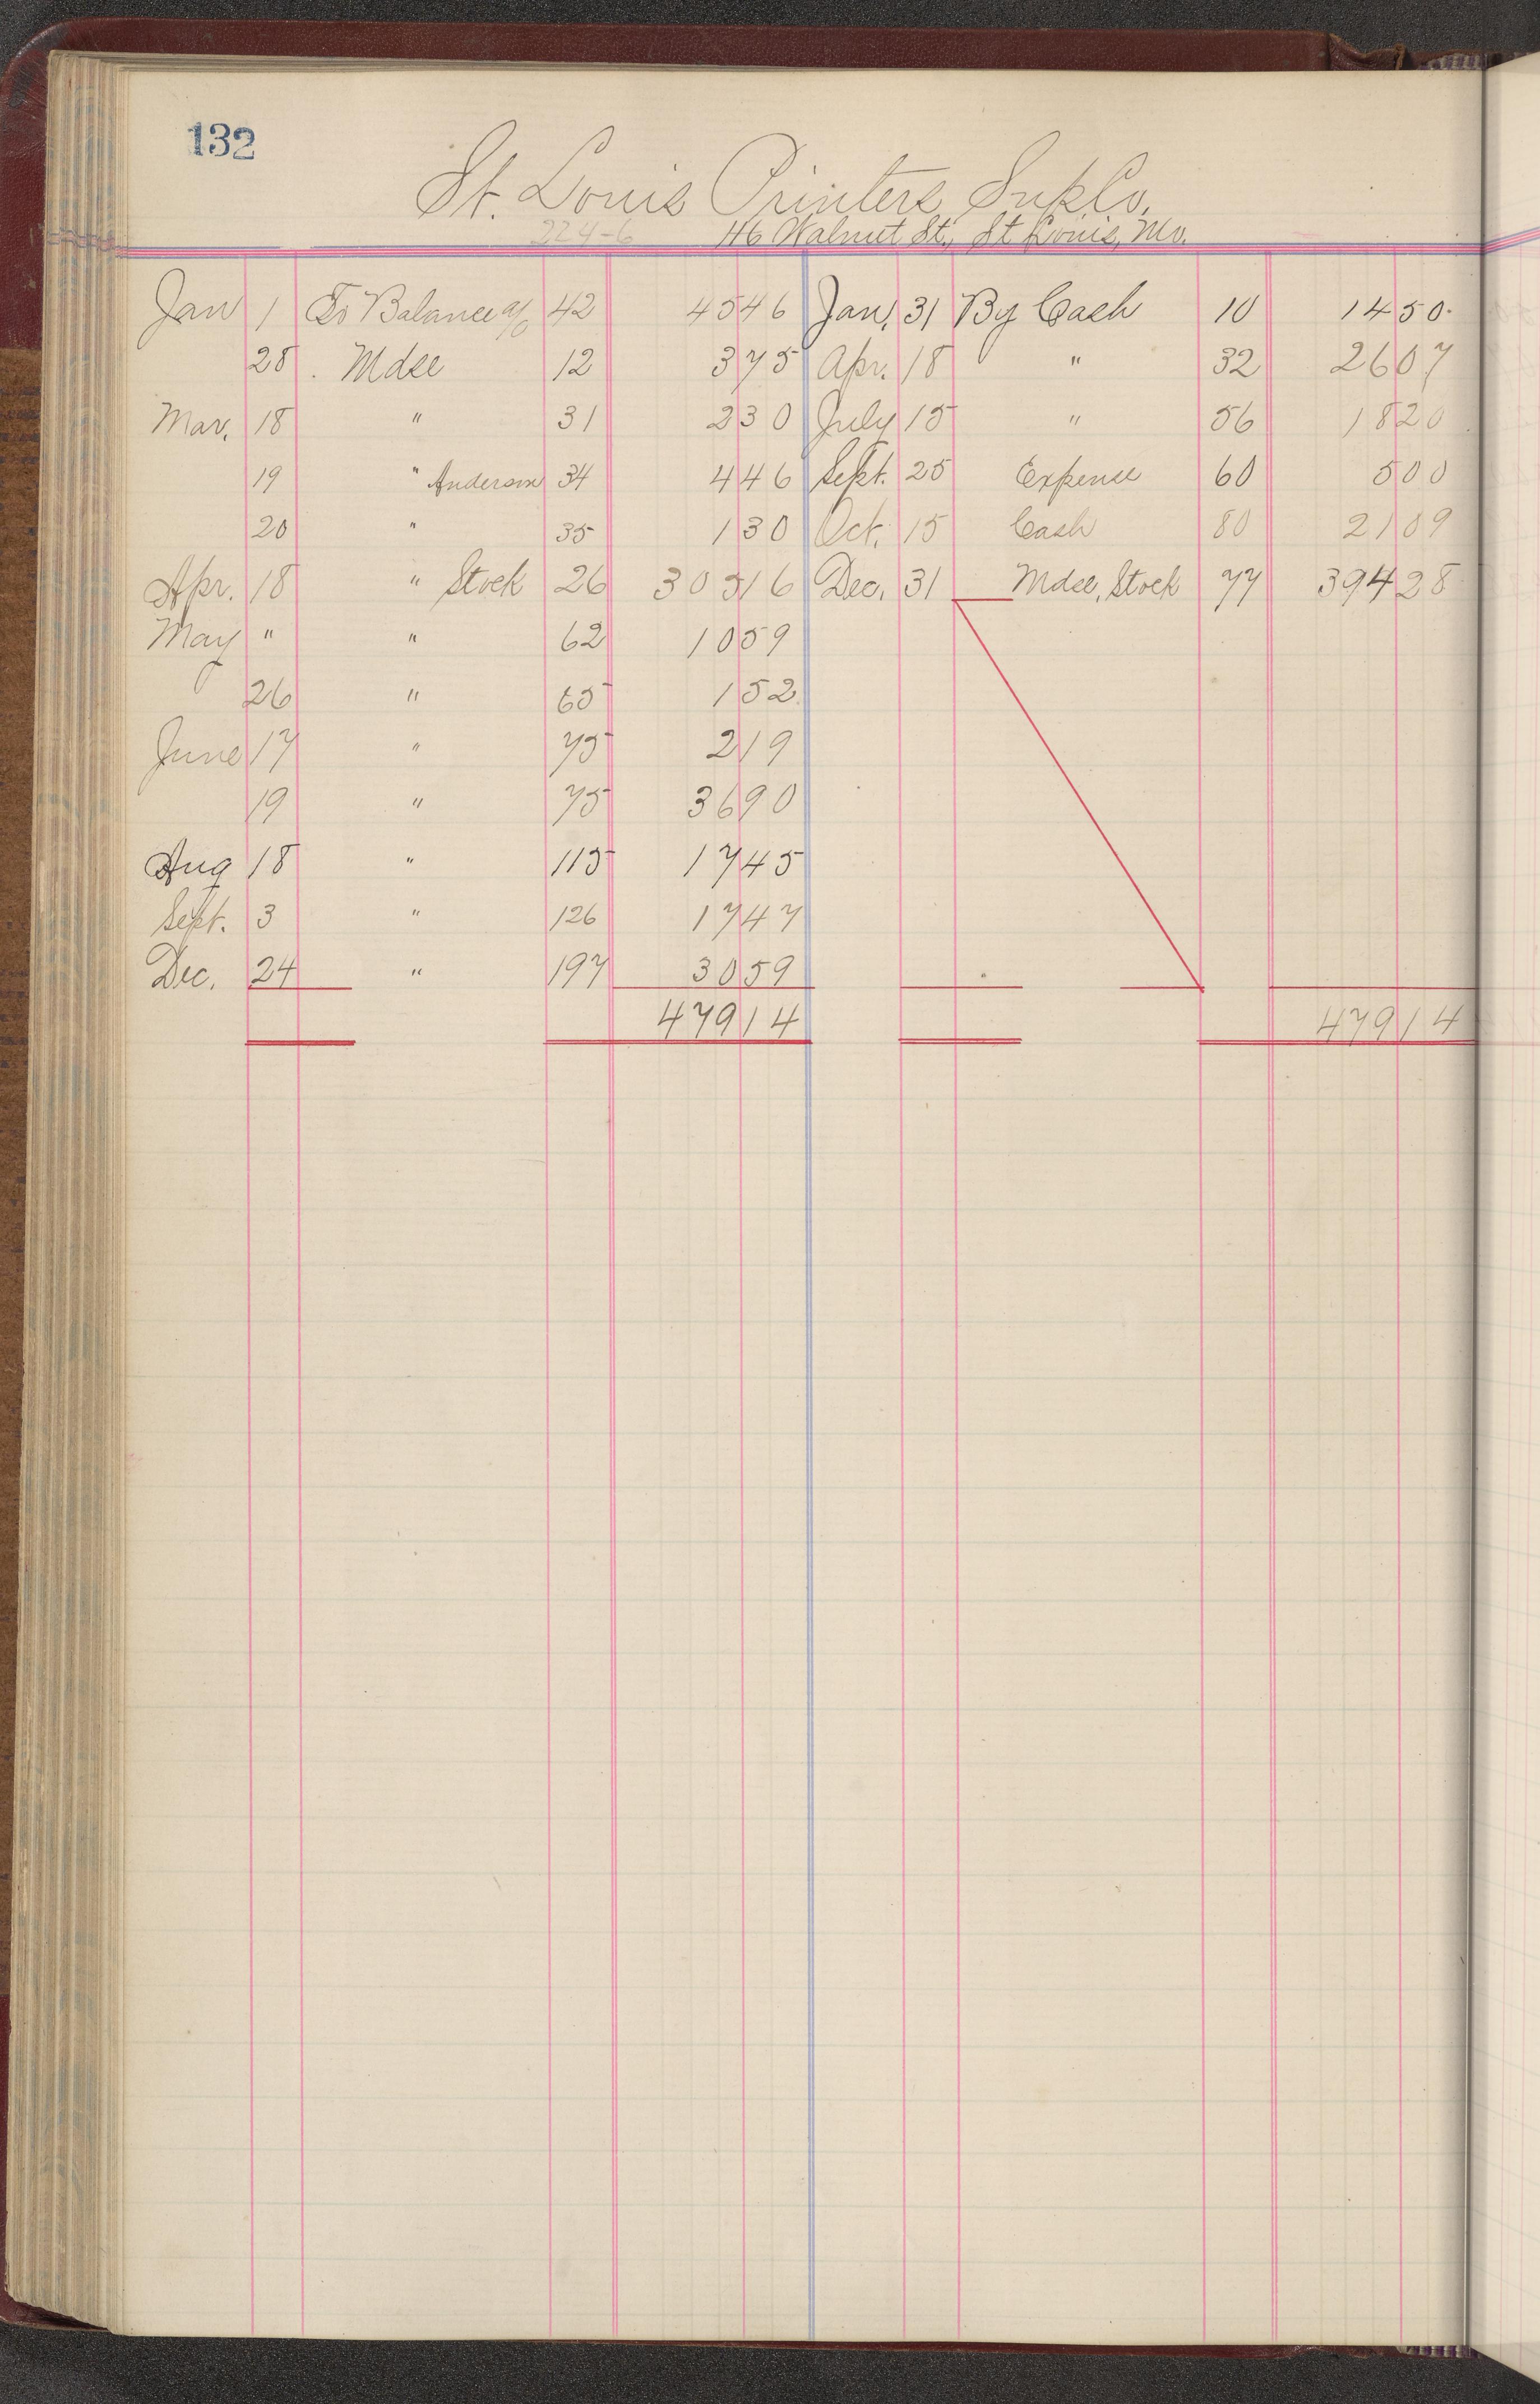 132
St. Louis Printers Sup Co.
224-6 116 Walnut St., St Louis, Mo.
Jan 1 To Balance a/c 42 45 46 Jan. 31 By Cash 10 14 50
28 Mdse 12 3 75 Apr. 18 " 32 26 07
Mar. 18 " 31 2 30 July 15 " 56 18 20
19 " Anderson 34 4 46 Sept. 25 Expense 60 5 00
20 " 35 1 30 Oct. 15 Cash 80 21 09
Apr. 18 " Stock 26 305 16 Dec. 31 Mdse, Stock 77 394 28
May " " 62 10 59
26 " 65 1 52
June 17 " 75 2 19
19 " 75 36 90
Aug 18 " 115 17 45
Sept. 3 " 126 17 47
Dec. 24 " 197 30 59
479 14 479 14